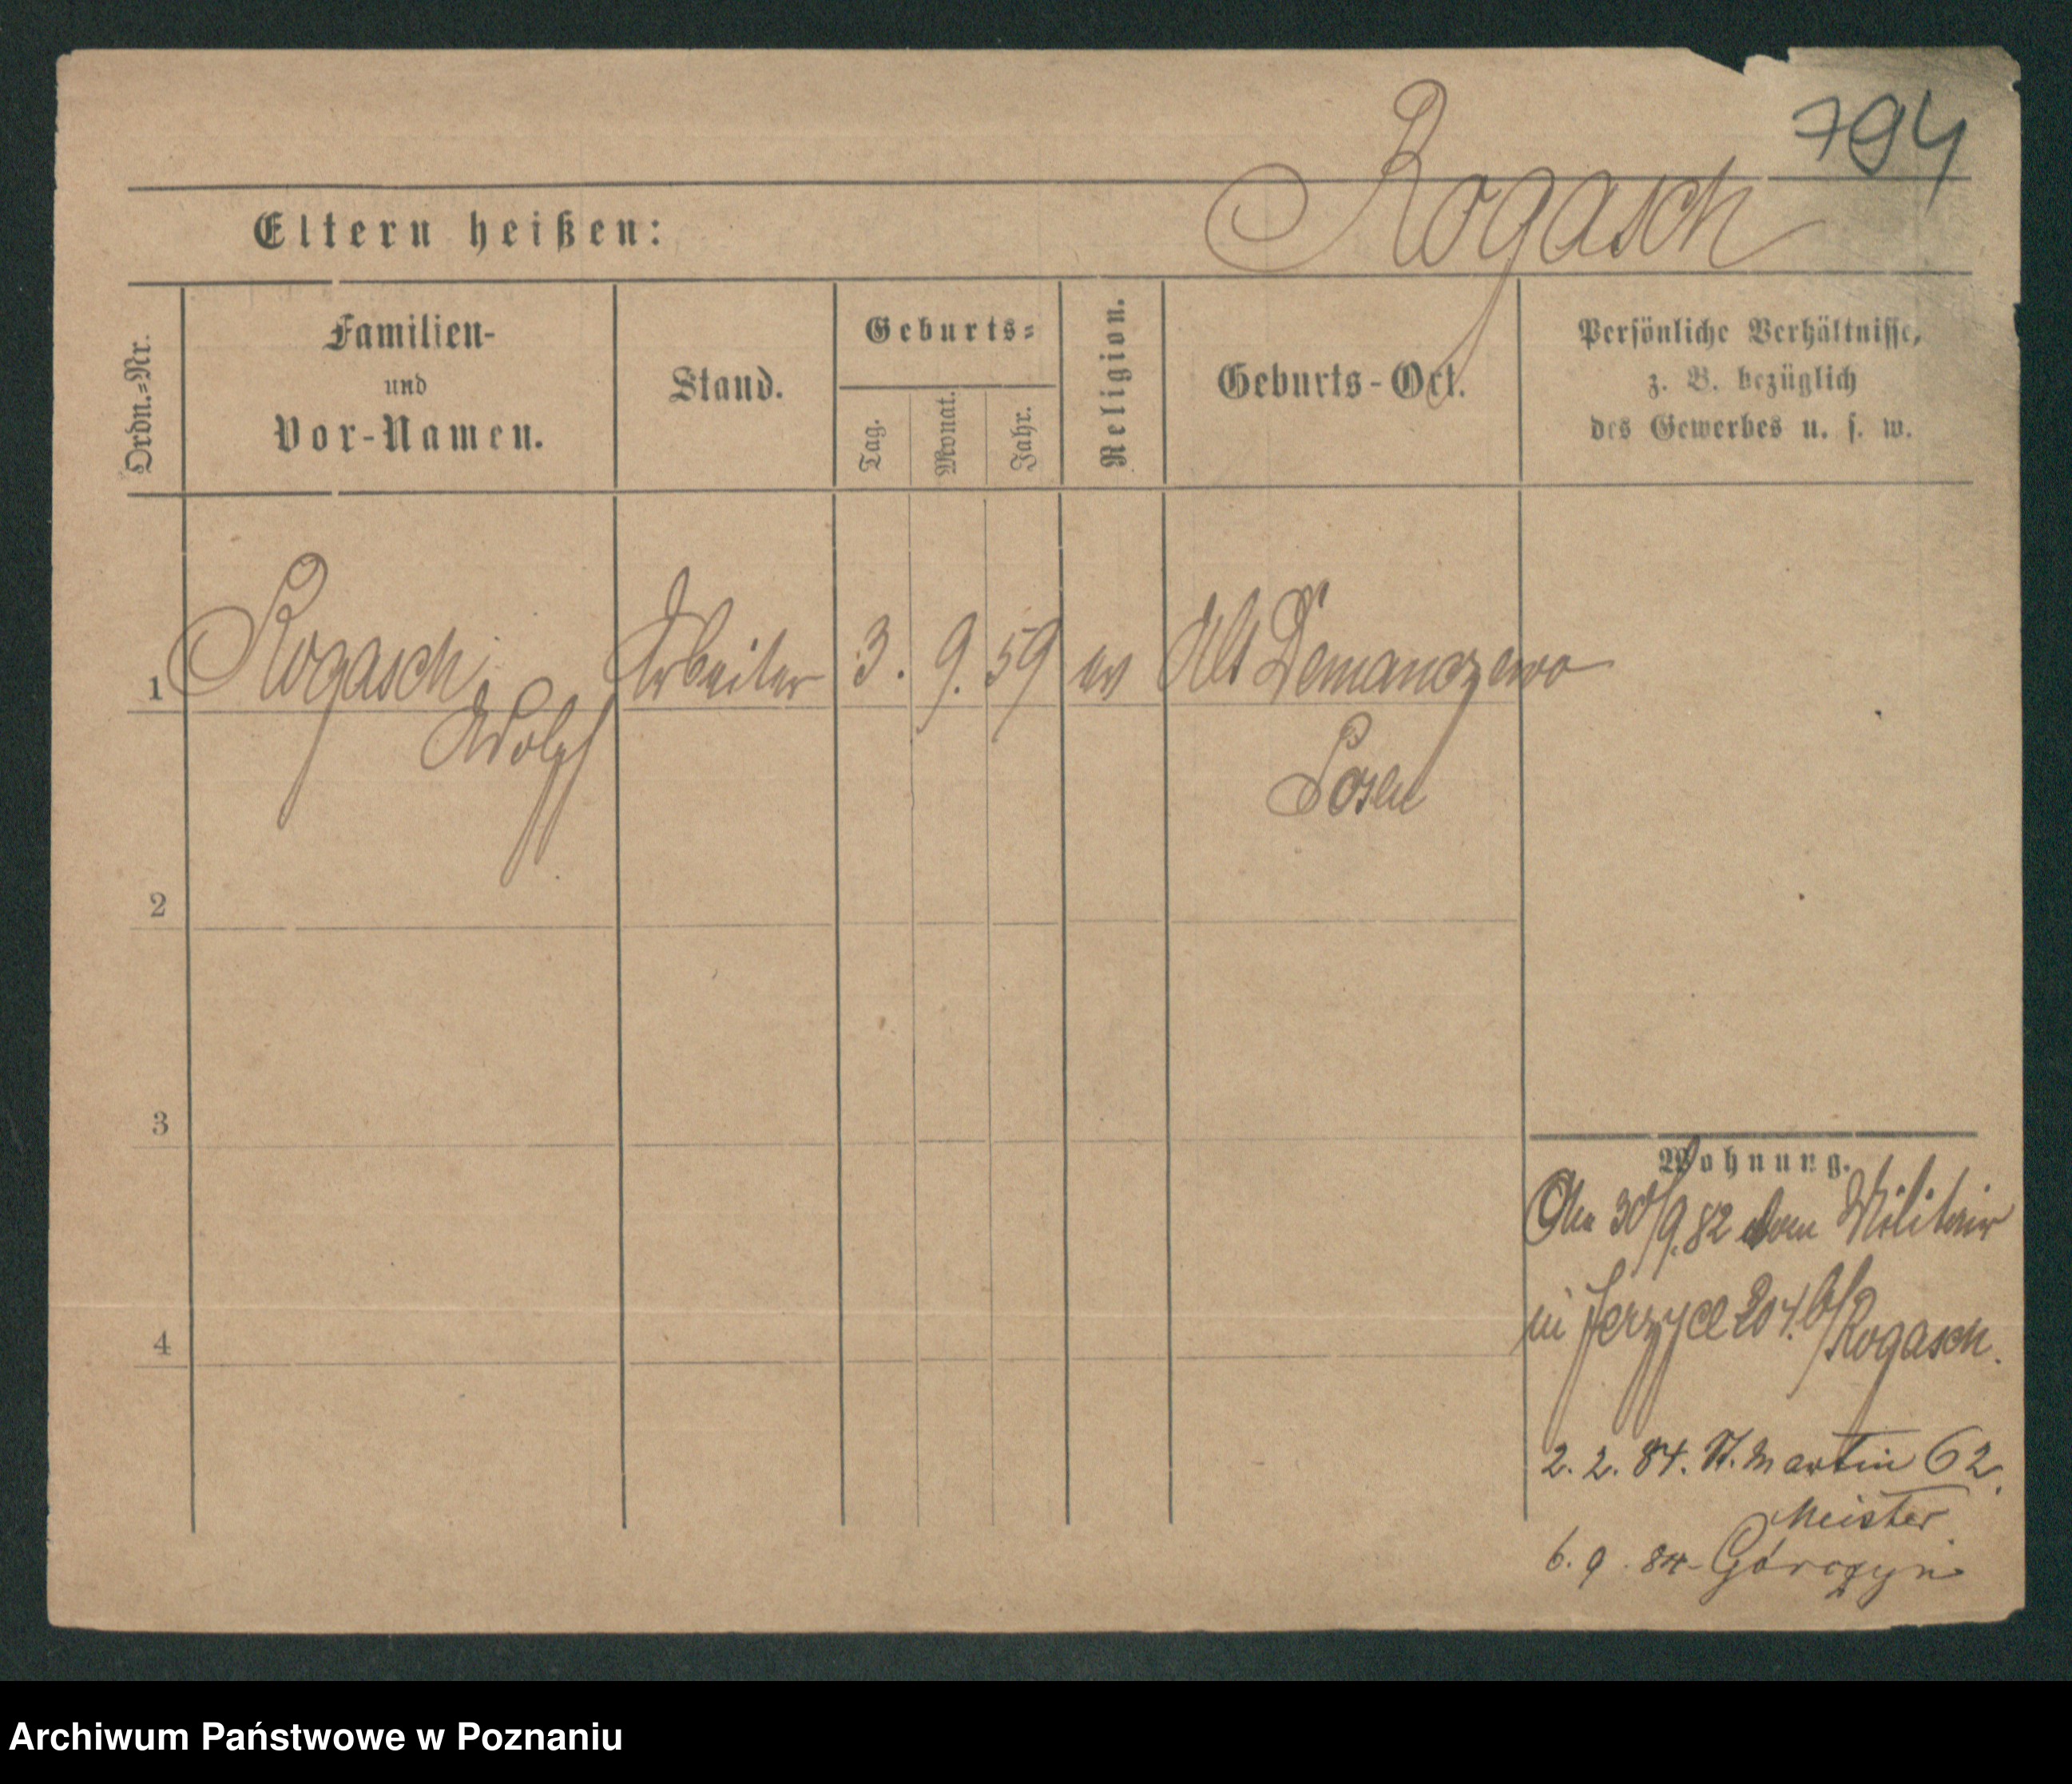 794
Rogasch
Eltern heißen:
Ordn.=Nr.
Familien-
und
Vor-Namen.
Stand.
Geburts=
Tag.
Monat.
Jahr.
Religion.
Geburts-Ort.
Persönliche Verhältnisse,
z. B. bezüglich
des Gewerbes u. s. w.
1 Rogasch Arbeiter 3. 9. 59 ev Alt Demanczewo
Adolf
Posen
2
3
4
Wohnung.
30/9.82 vom Militair
in Jerzyce 204. b/Rogasch.
2. 2. 84. St. Martin 62.
Meister
6. 9. 84-
Archiwum Państwowe w Poznaniu